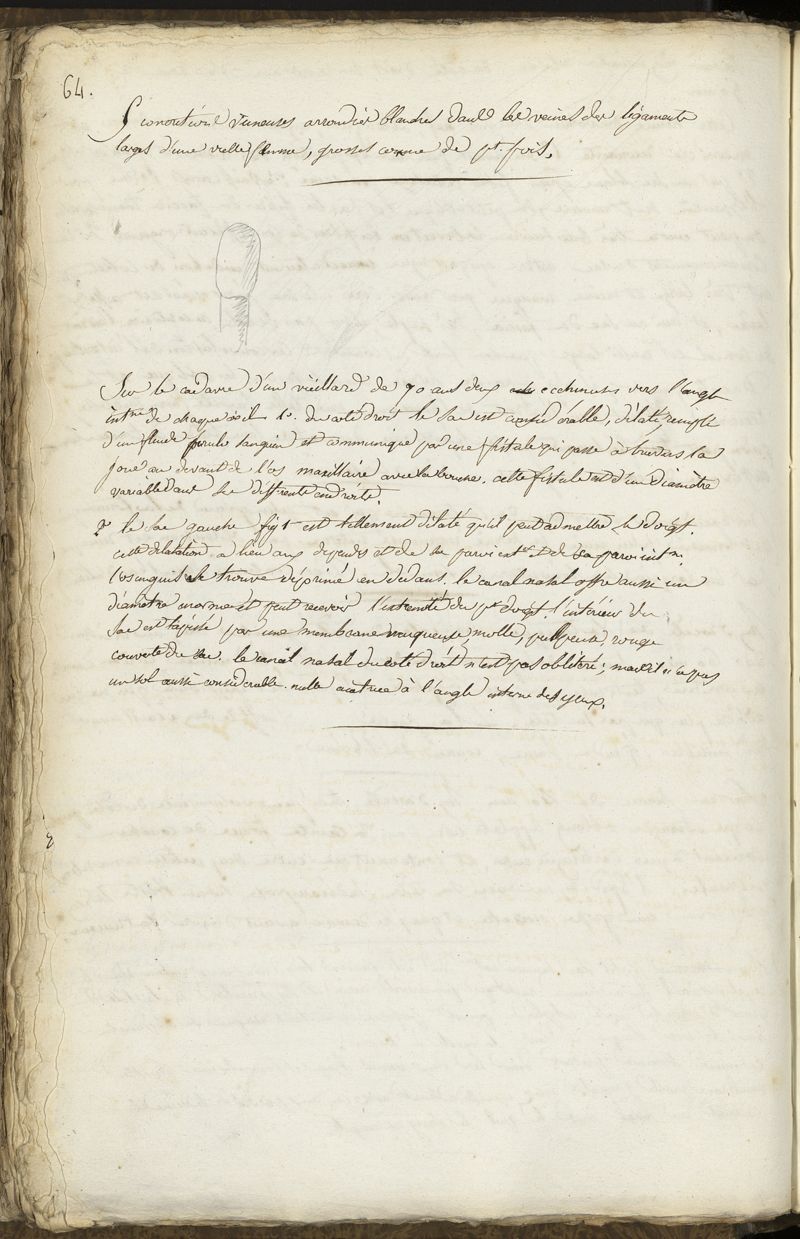 64.
tumeurs arrondies blanches dans les veines des ligaments
larges d'une vielle femme, grosses comme de pt. pois.
Sur le cadavre d'un vieillard de 70 ans deux ecchimoses vers l'angle
intne de chaque œil 1°. du coté droit le sac est considérable, dilaté, rempli
d'un fluide purulo sanguin et communique par une fistule qui passe à travers la
joue au devant de l'os maxillaire avec la bouche. cette fistule est d'un diamètre
variable dans les différents endroits.
2° le sac gauche fig 1 est tellement dilaté qu'il peut admettre le doigt.
cette dilatation a lieu aux dépends et de sa paroi extr et de sa paroi intr.
l'os unguis se trouve déprimé en dedans. le canal nasal offre aussi un
diamètre énorme et peut recevoir l'extremité du pt doigt. l'intérieur du
sac est tapissé par une membrane muqueuse, molle, pulpeuse, rouge
couverte de pus. le canal nasal du coté droit n'est pas oblitéré; mais il n'a pas
un vol. aussi considerable. nulle cicatrice à l'angle interne des yeux.